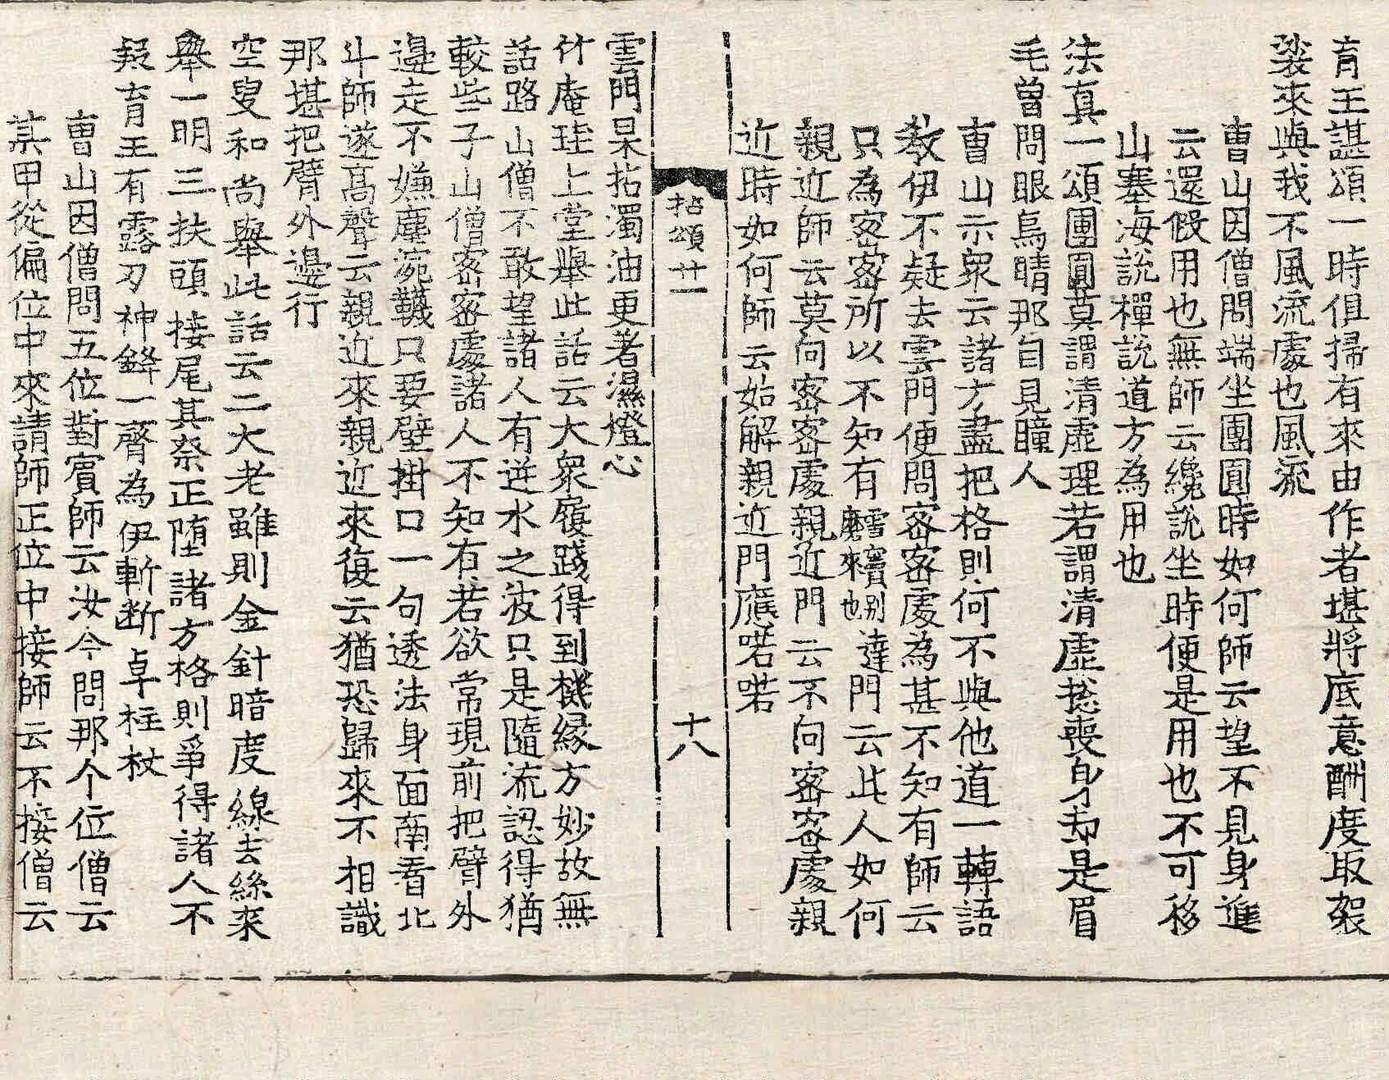 育王諶頌一時俱掃有來由作者堪將底意酬度取袈
裟來與我不風流處也風流
曹山因僧問端坐團圓時如何師云望不見身進
云還假用也無師云纔說坐時便是用也不可移
山塞海說禪說道方為用也
法真一頌團圓莫謂清虛理若謂清虛捴喪身却是眉
毛曾問眼烏睛那自見瞳人
曹山示衆云諸方盡把格則何不與他道一轉語
教伊不疑去雲門便問密密處為甚不知有師云
只為密密所以不知有雪竇別磨來也達門云此人如何
親近師云莫向密密處親近門云不向密密處親
近時如何師云始解親近門應喏喏
拈頌廿一
十八
雲門杲拈濁油更著濕燈心
竹庵珪上堂舉此話云大衆履踐得到機緣方妙故無
話路山僧不敢望諸人有迸水之波只是隨流認得猶
較些子山僧密密處諸人不知有若欲常現前把臂外
邊走不嫌塵涴韈只要壁掛口一句透法身面南看北
斗師遂高聲云親近來親近來復云猶恐歸來不相識
那堪把臂外邊行
空叟和尚舉此話云二大老雖則金針暗度線去絲來
舉一明三扶頭接尾其柰正墮諸方格則爭得諸人不
疑育王有露刃神鋒一齊為伊斬断卓柱杖
曹山因僧問五位對賓師云汝今問那个位僧云
某甲從偏位中來請師正位中接師云不接僧云